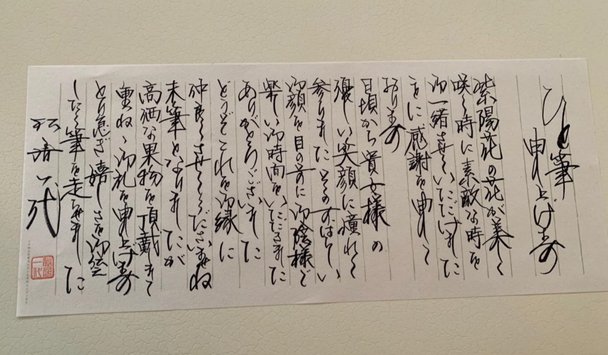 ひと筆
申し上げます
紫陽花の花が美しく
咲く時に素敵な時を
御一緒させていただいました
ことに感謝を申して
おります
日頃から貴女様の
優しい笑顔に憧れて
参りました
御顔を目の前に御陰様で
楽しい御時間をいただきました
ありがとうございました
どうぞこれを御縁に
仲良くさせてくださいませね
末筆となりましたが
高価な果物を頂戴して
重ねて御礼を申し上げます
とり急ぎ嬉しさを御伝え
したく筆を走らせました
一代